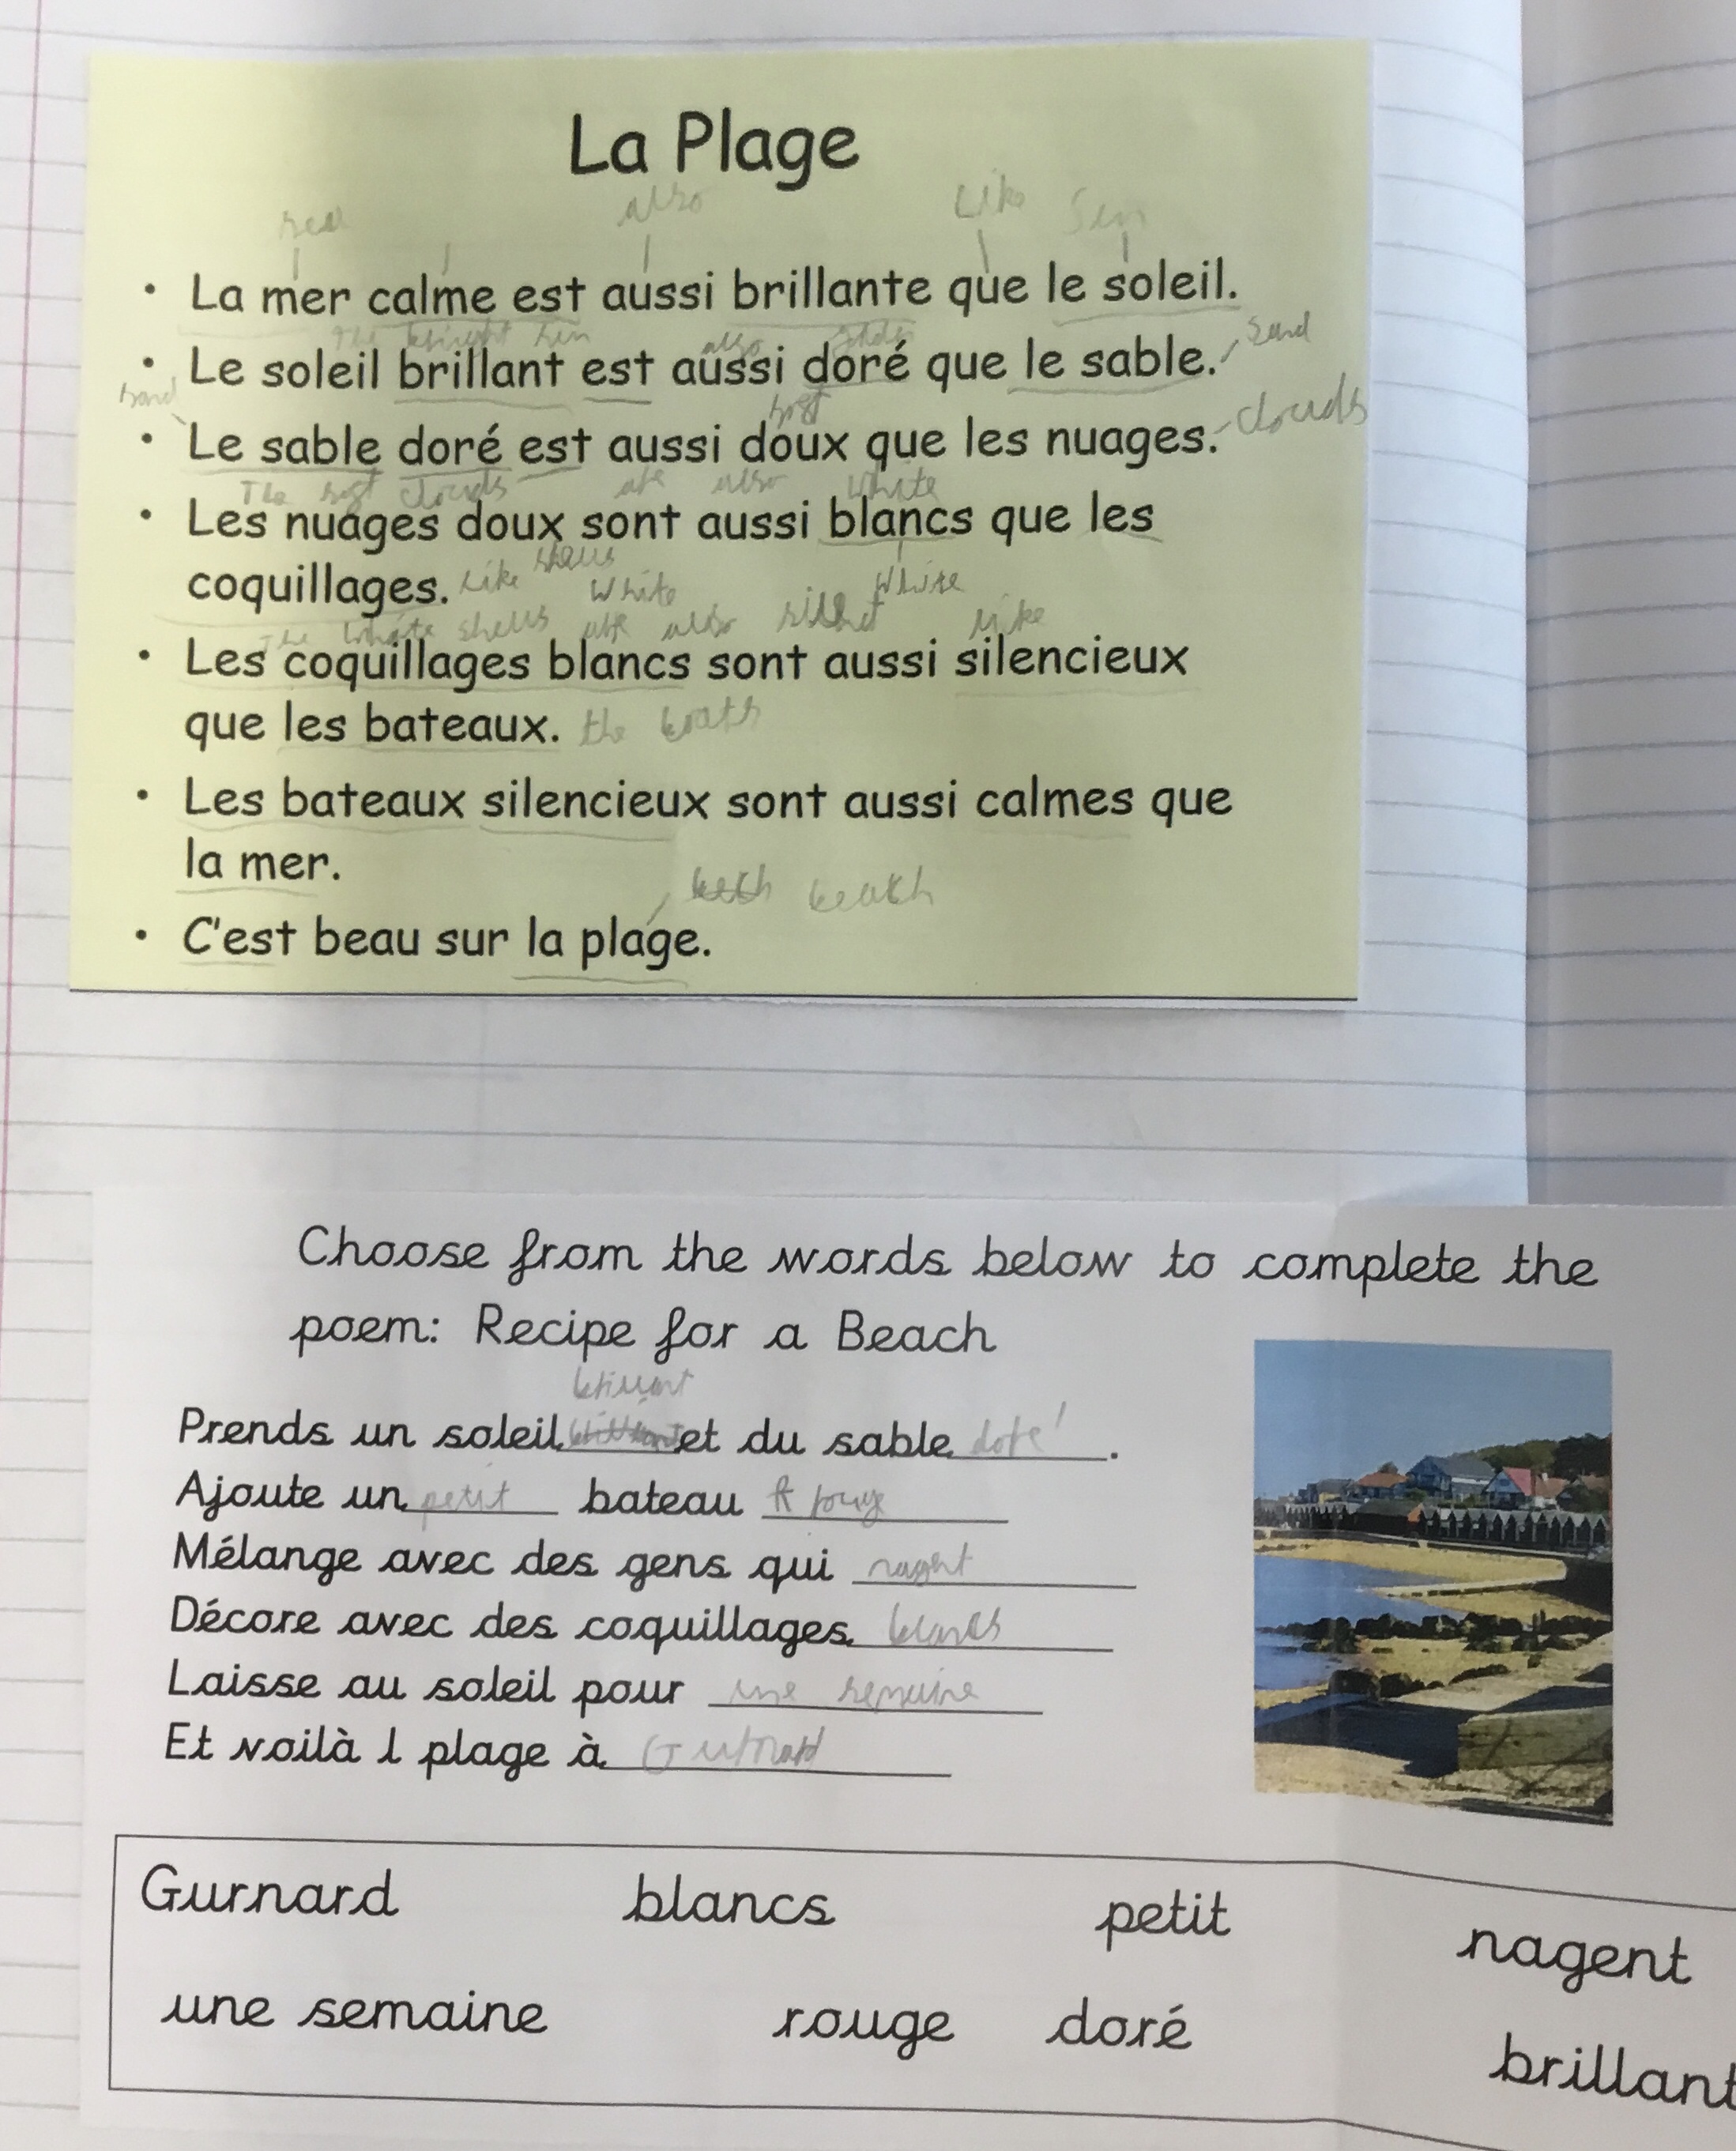 La Plage
sea also Like Sun
• La mer calme est aussi brillante que le soleil.
The also sand
• Le soleil brillant est aussi doré que le sable.
• Le sable doré est aussi doux que les nuages. clouds
The soft clouds are also white
• Les nuages doux sont aussi blancs que les
coquillages. Like shells White White
The white shells are also like
• Les coquillages blancs sont aussi silencieux
que les bateaux. the boats
• Les bateaux silencieux sont aussi calmes que
la mer.
beach
• C'est beau sur la plage.
Choose from the words below to complete the
poem: Recipe for a Beach
brillant
Prends un soleil et du sable doré.
Ajoute un petit bateau
Mélange avec des gens qui nagent
Décore avec des coquillages blancs
Laisse au soleil pour une semaine
Et voilà l plage à
Gurnard blancs petit nagent
une semaine rouge doré brillant